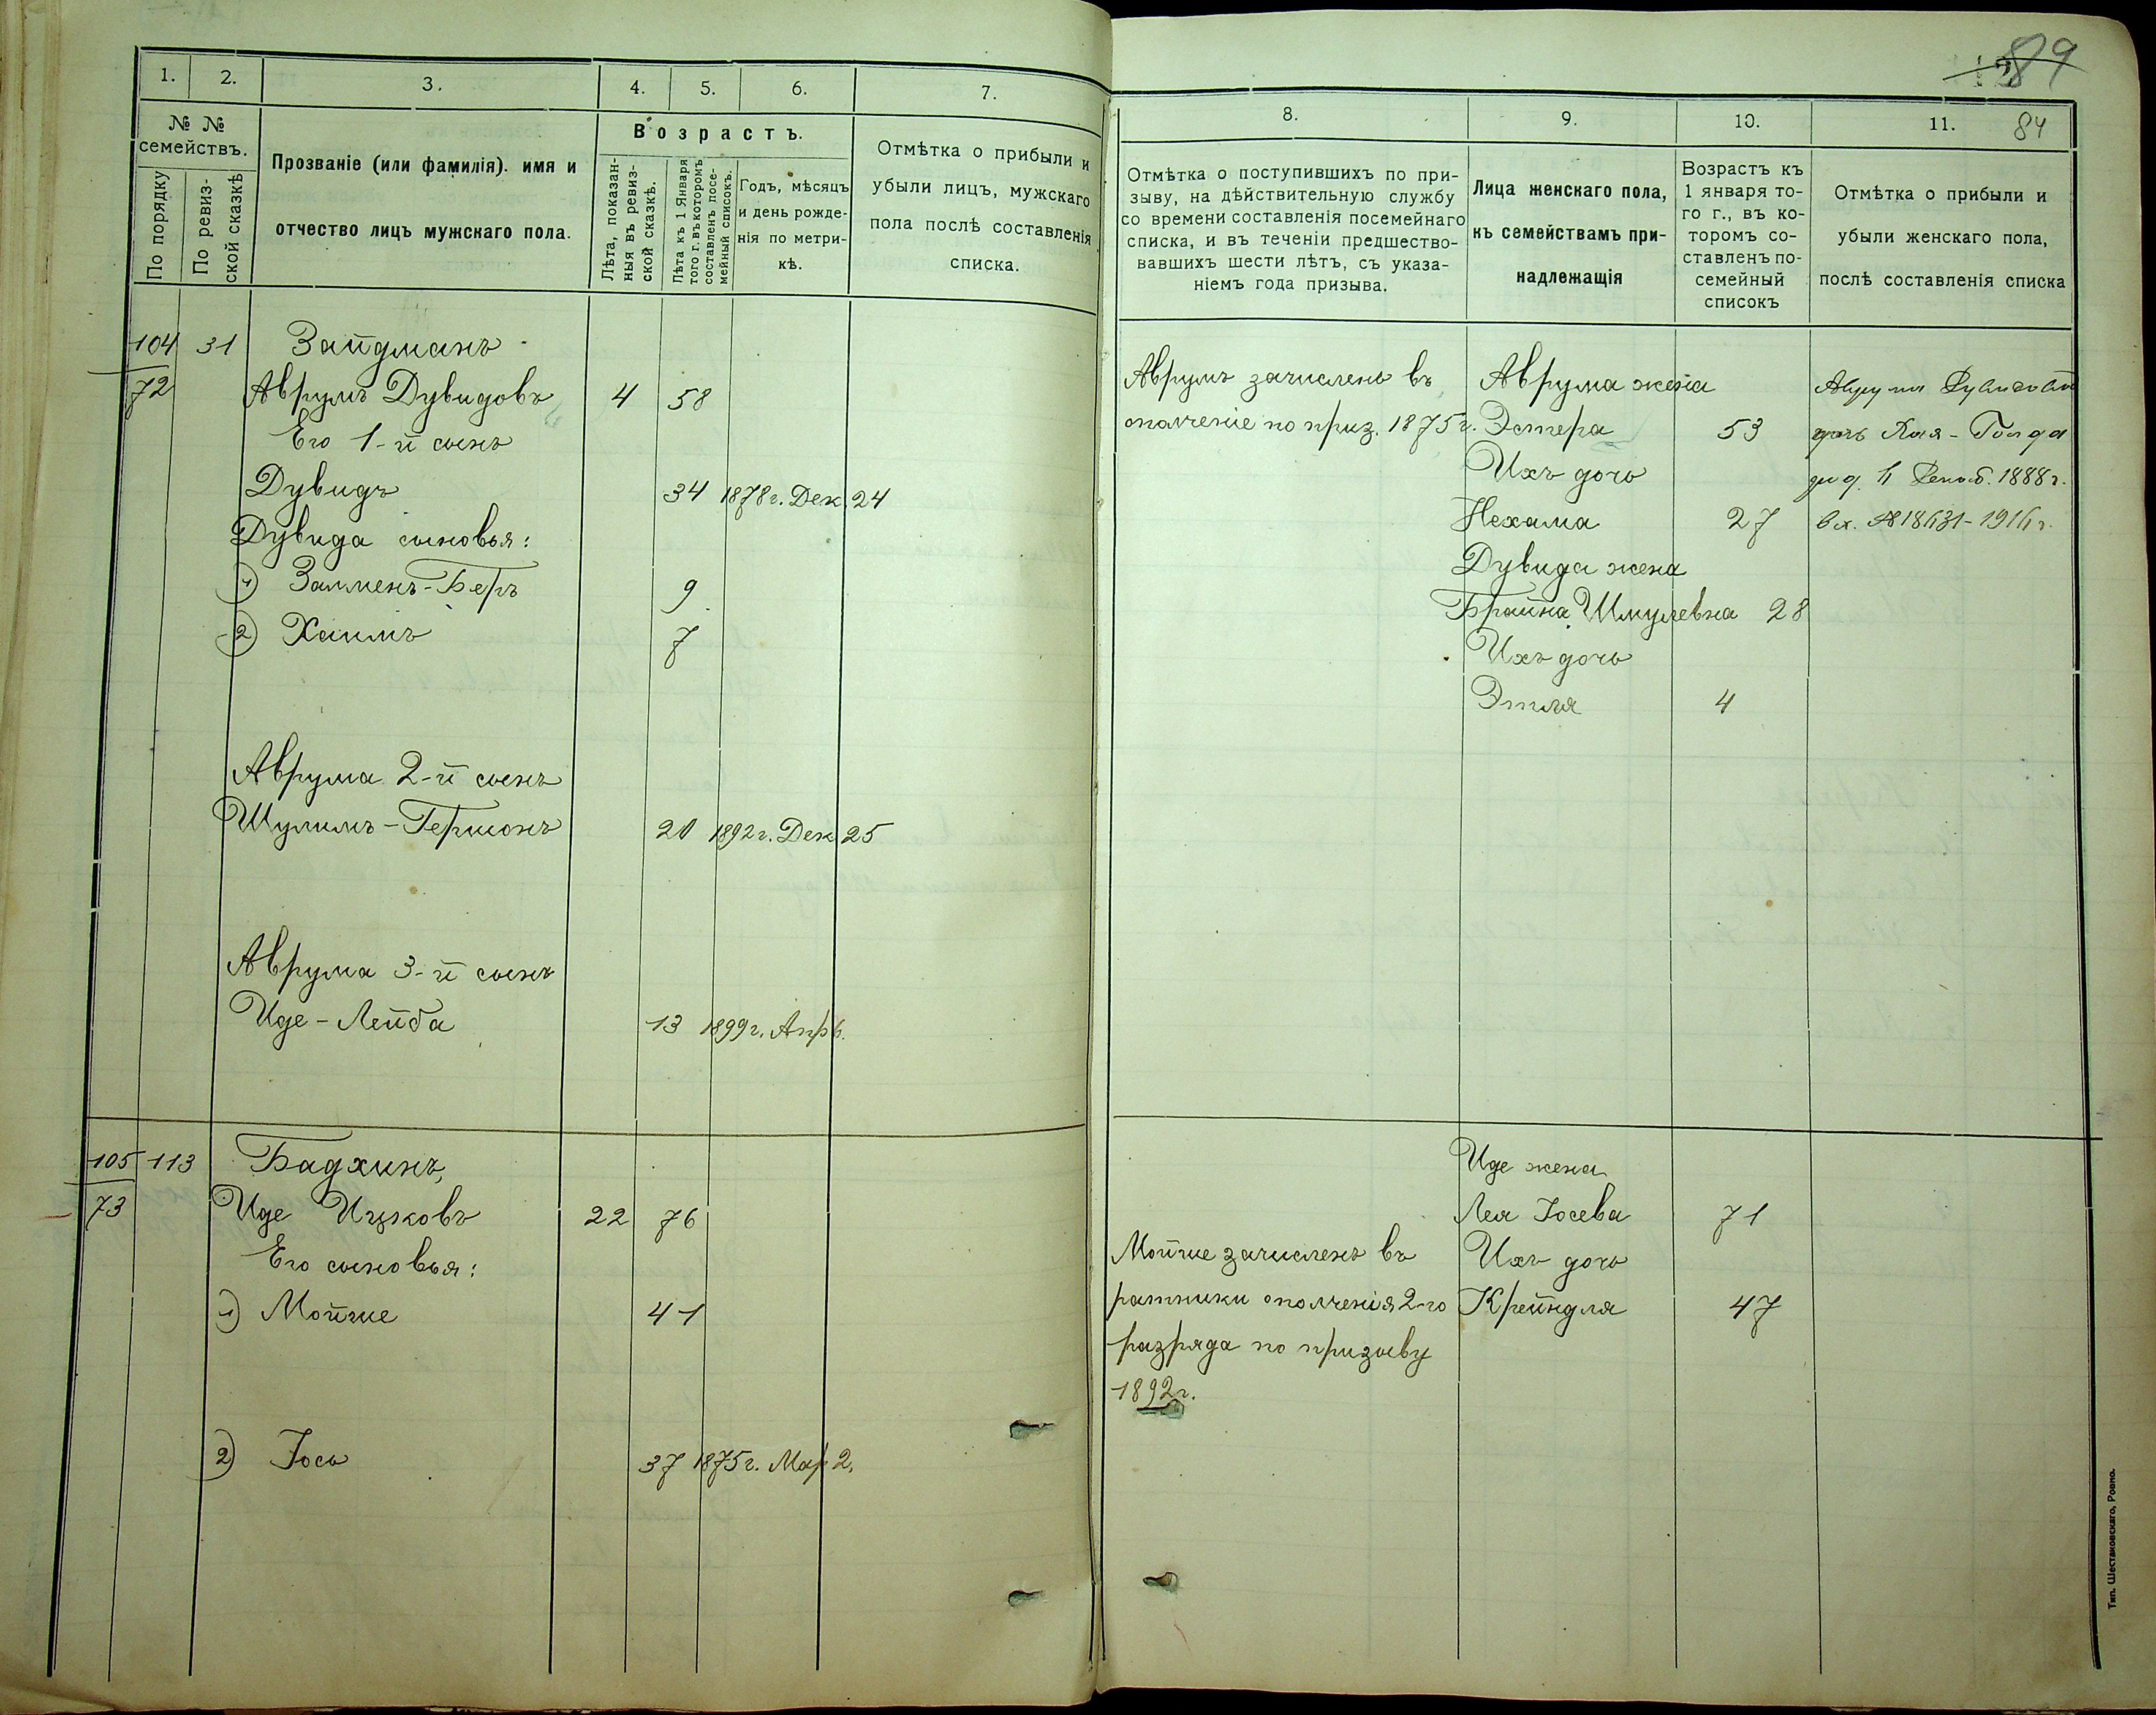 89
84
1. 2. 3. 4. 5. 6. 7.
№ №
семействъ.
По порядку
По ревиз-
ской сказкѣ
Прозваніе (или фамилія). имя и
отчество лицъ мужскаго пола.
Возрастъ.
Лѣта, показан-
ныя въ ревиз-
ской сказкѣ.
Лѣта къ 1 Января
того г. въ которомъ
составленъ посе-
мейный списокъ.
Годъ, мѣсяцъ
и день рожде-
нія по метри-
кѣ.
Отмѣтка о прибыли и
убыли лицъ, мужскаго
пола послѣ составленія
списка.
104 31 Зайдманъ
72 Аврумъ Дувидовъ 4 58
Его 1-й сынъ
Дувидъ 34 1878г. Дек. 24
Дувида сыновья:
1) Залменъ-Беръ 9
2) Хаимъ 7
Аврума 2-й сынъ
Шулимъ-Гершонъ 20 1892г. Дек 25
Аврума 3-й сынъ
Иде-Лейба 13 1899г. Апр 6.
105 113 Бадхинъ,
73 Иде Ицковъ 22 76
Его сыновья:
1) Мойше 41
2) Іось 37 1875г. Мар 2.
8. 9. 10. 11.
Отмѣтка о поступившихъ по при-
зыву, на дѣйствительную службу
со времени составленія посемейнаго
списка, и въ теченіи предшество-
вавшихъ шести лѣтъ, съ указа-
ніемъ года призыва.
Лица женскаго пола,
къ семействамъ при-
надлежащія
Возрастъ къ
1 января то-
го г., въ ко-
торомъ со-
ставленъ по-
семейный
списокъ
Отмѣтка о прибыли и
убыли женскаго пола,
послѣ составленія списка
Аврумъ зачисленъ въ
ополченіе по приз. 1875г.
Аврума жена
Эстера 53
Ихъ дочь
Нехама 27
Дувида жена
Брайна Шмулевна 28
Ихъ дочь
Этля 4
дочь Хая-Голда
1888г.
вх. №
Иде жена
Лея Іосева 71
Ихъ дочь
Крейндля 47
Мойше зачисленъ въ
ратники ополченія 2-го
разряда по призыву
1892г.
Тип. Шестаковскаго, Ровно.